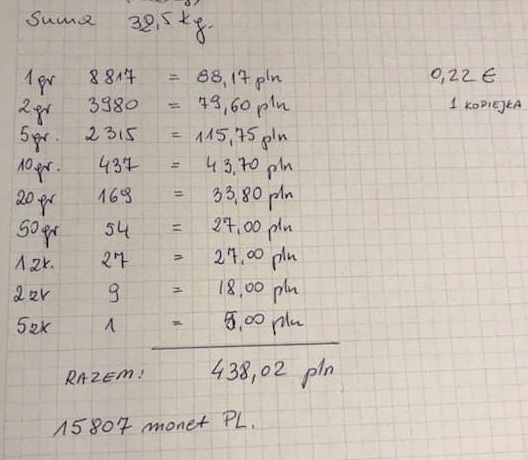 Suma 32,5 kg.
1 gr 8817 = 88,17 pln 0,22 €
2 gr 3980 = 79,60 pln 1 KOPIEJKA
5 gr. 2315 = 115,75 pln
10 gr. 437 = 43,70 pln
20 gr 169 = 33,80 pln
50 gr 54 = 27,00 pln
1 zł. 27 = 27,00 pln
2 zł 9 = 18,00 pln
5 zł 1 = 5,00 pln
RAZEM: 438,02 pln
15807 monet PL.